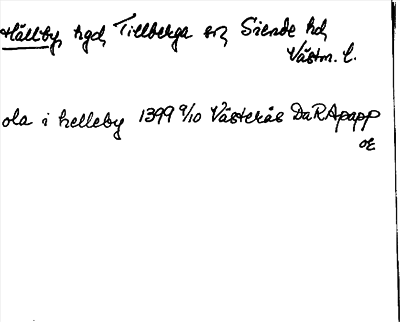 Hällby, hgd, Tillberga sn, Siende hd,
Västm. l.
ola i helleby 1399 9/10 Västerås DaRApapp
OE